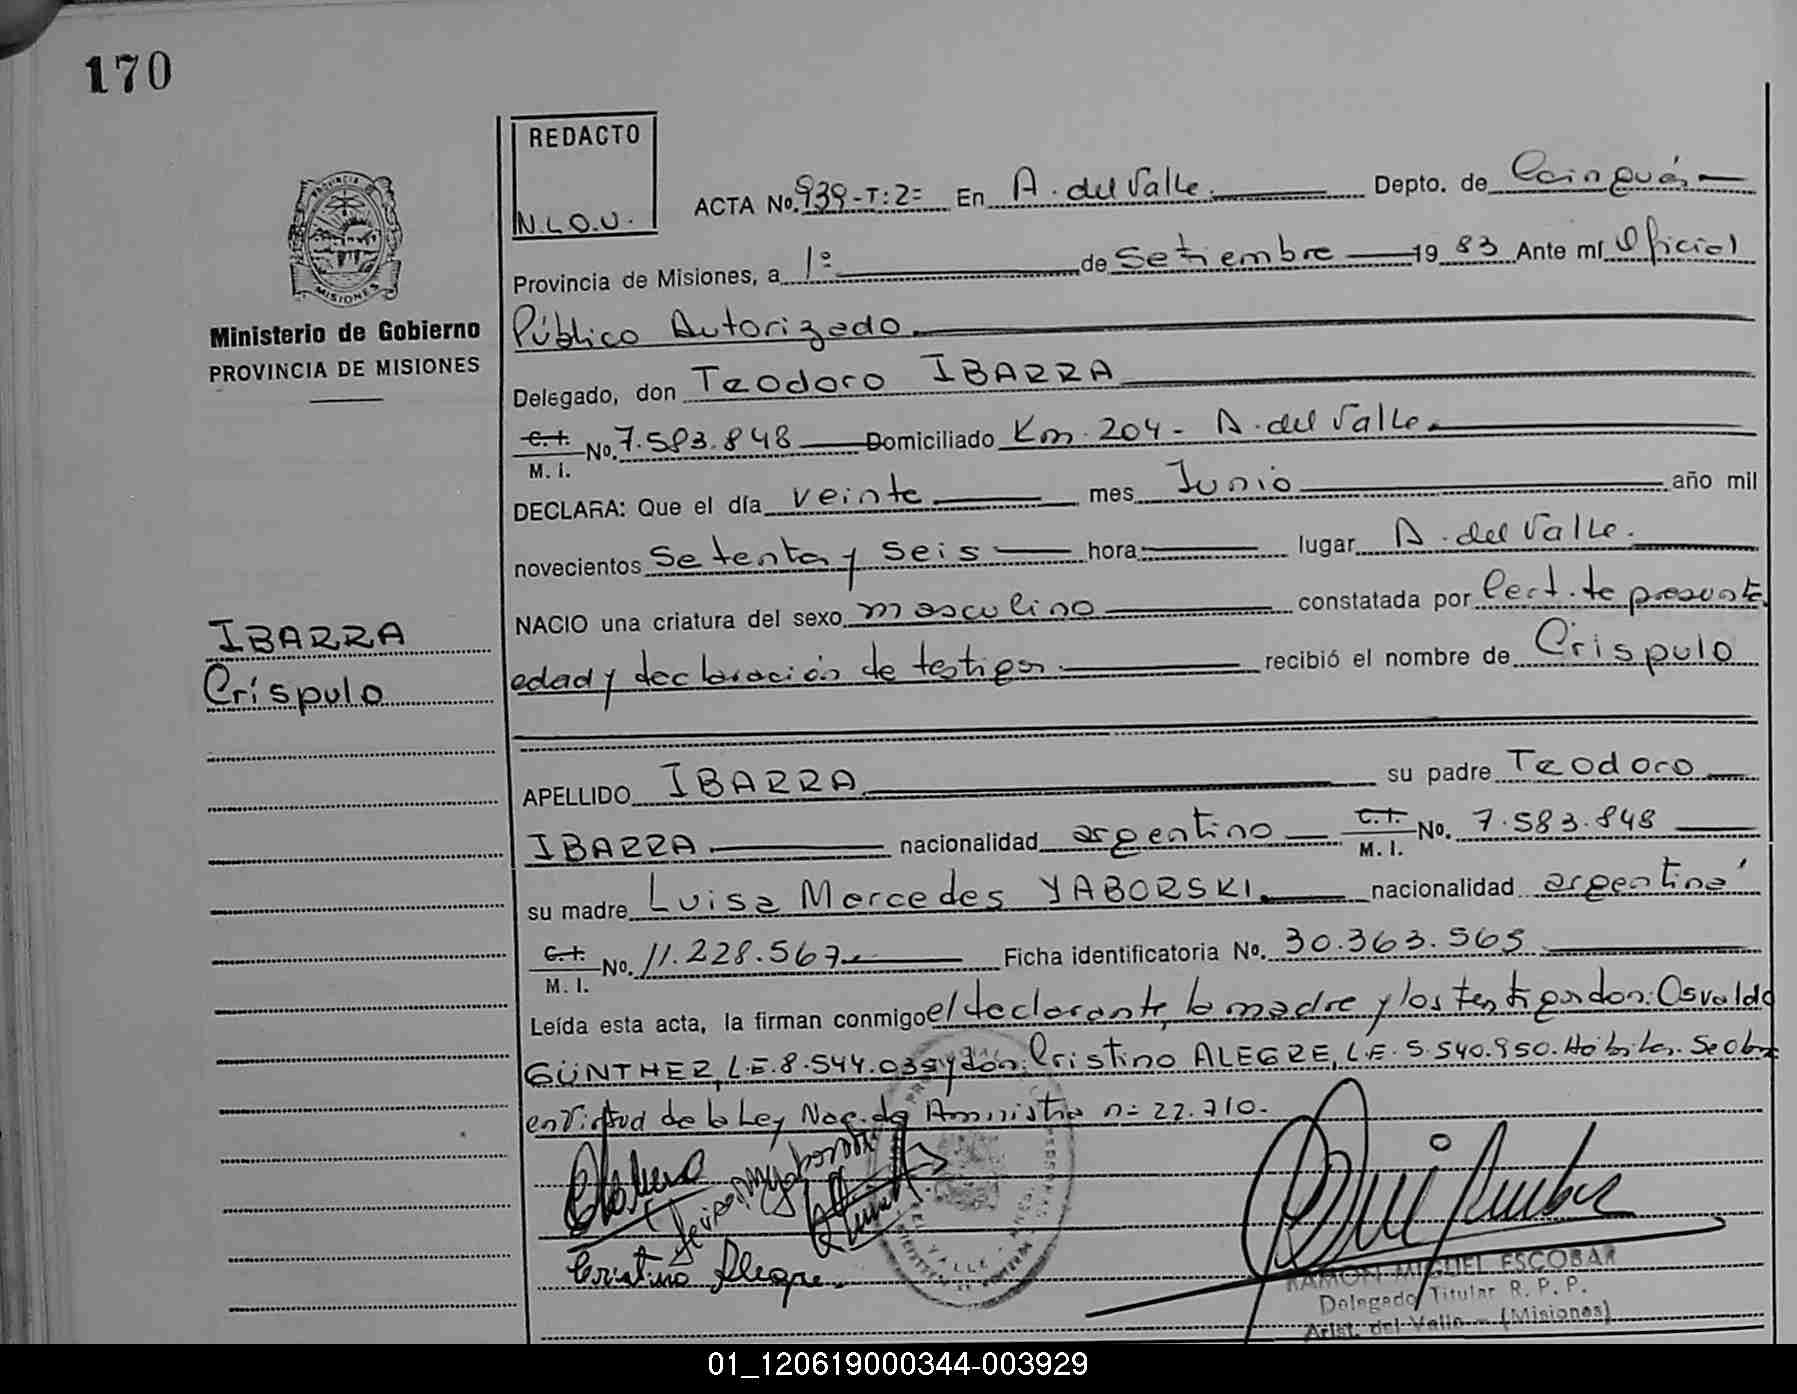 170
REDACTO
N.L.O.U.
ACTA No. 939-T:2= En A. del Valle. Depto. de Cainguás
Provincia de Misiones, a 1º de Setiembre 1983 Ante mí Oficial
Público Autorizado
Delegado, don Teodoro IBARRA
C.I. M.I. No. 7.583.848 Domiciliado Km. 204 - A. del Valle.
DECLARA: Que el día veinte mes Junio año mil
novecientos Setenta y Seis hora lugar A. del Valle.
NACIO una criatura del sexo masculino constatada por Cert. de presunta
edad y declaración de testigos. recibió el nombre de Críspulo
APELLIDO IBARRA su padre Teodoro
IBARRA nacionalidad argentino C.I. M.I. No. 7.583.848
su madre Luisa Mercedes YABORSKI. nacionalidad argentina
C.I. M.I. No. 11.228.567 Ficha identificatoria No. 30.363.565
Leída esta acta, la firman conmigo el declarante, la madre y los testigos don: Osvaldo
GÜNTHER, L.E. 8.544.039 y don: Cristino ALEGRE, L.E. 5.540.950. Hábiles. Se obra
en virtud de la Ley Nac. de Amnistía nº 22.710.
Cristino Alegre.
RAMON MIGUEL ESCOBAR
Delegado Titular R. P. P.
Arist. del Valle - (Misiones)
PROVINCIA DE
MISIONES
Ministerio de Gobierno
PROVINCIA DE MISIONES
IBARRA
Críspulo
01_120619000344-003929